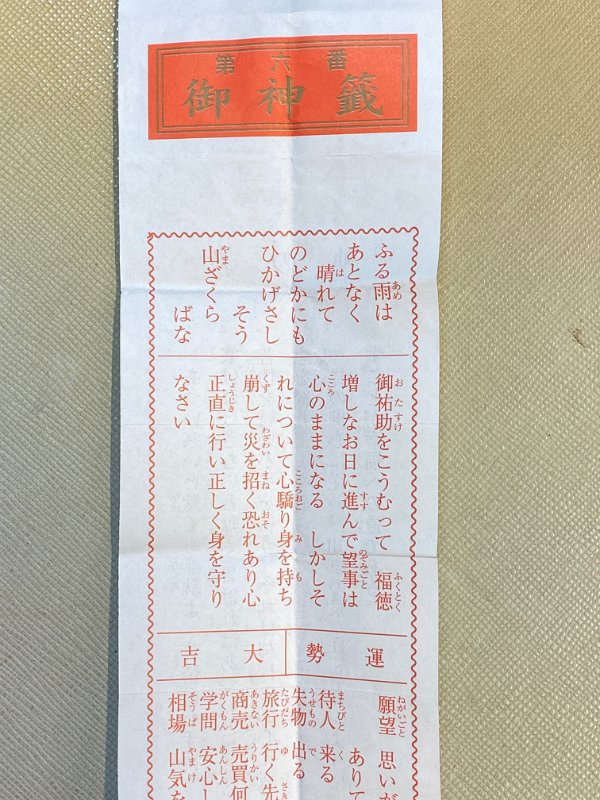 第六番
御神籤
ふる雨は
あとなく
晴れて
のどかにも
ひかげさし
そう
山ざくら
ばな
御祐助をこうむって 福徳
増しなお日に進んで望事は
心のままになる しかしそ
れについて心驕り身を持ち
崩して災を招く恐れあり心
正直に行い正しく身を守り
なさい
運勢
大吉
願望 思いが
ありて
待人 来る
失物 出る
旅行 行く先
商売 売買何
学問 安心し
相場 山気を